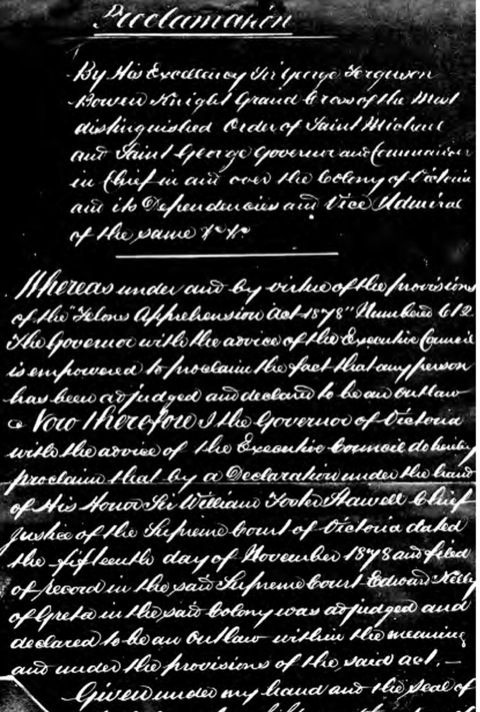 Proclamation
By His Excellency Sir George Ferguson
Bowen Knight Grand Cross of the Most
distinguished Order of Saint Michael
and Saint George Governor and Commander
in Chief in and over the Colony of Victoria
and its Dependencies and Vice Admiral
of the same &c &c
Whereas under and by virtue of the provisions
of the "Felons Apprehension Act 1878" Numbered 612
The Governor with the advice of the Executive Council
is empowered to proclaim the fact that any person
has been adjudged and declared to be an outlaw
Now therefore I the Governor of Victoria
with the advice of the Executive Council do hereby
proclaim that by a Declaration under the hand
of His Honor Sir William Foster Stawell Chief
Justice of the Supreme Court of Victoria dated
the fifteenth day of November 1878 and filed
of record in the said Supreme Court Edward Kelly
of Greta in the said Colony was adjudged and
declared to be an Outlaw within the meaning
and under the provisions of the said act. —
Given under my hand and the seal of